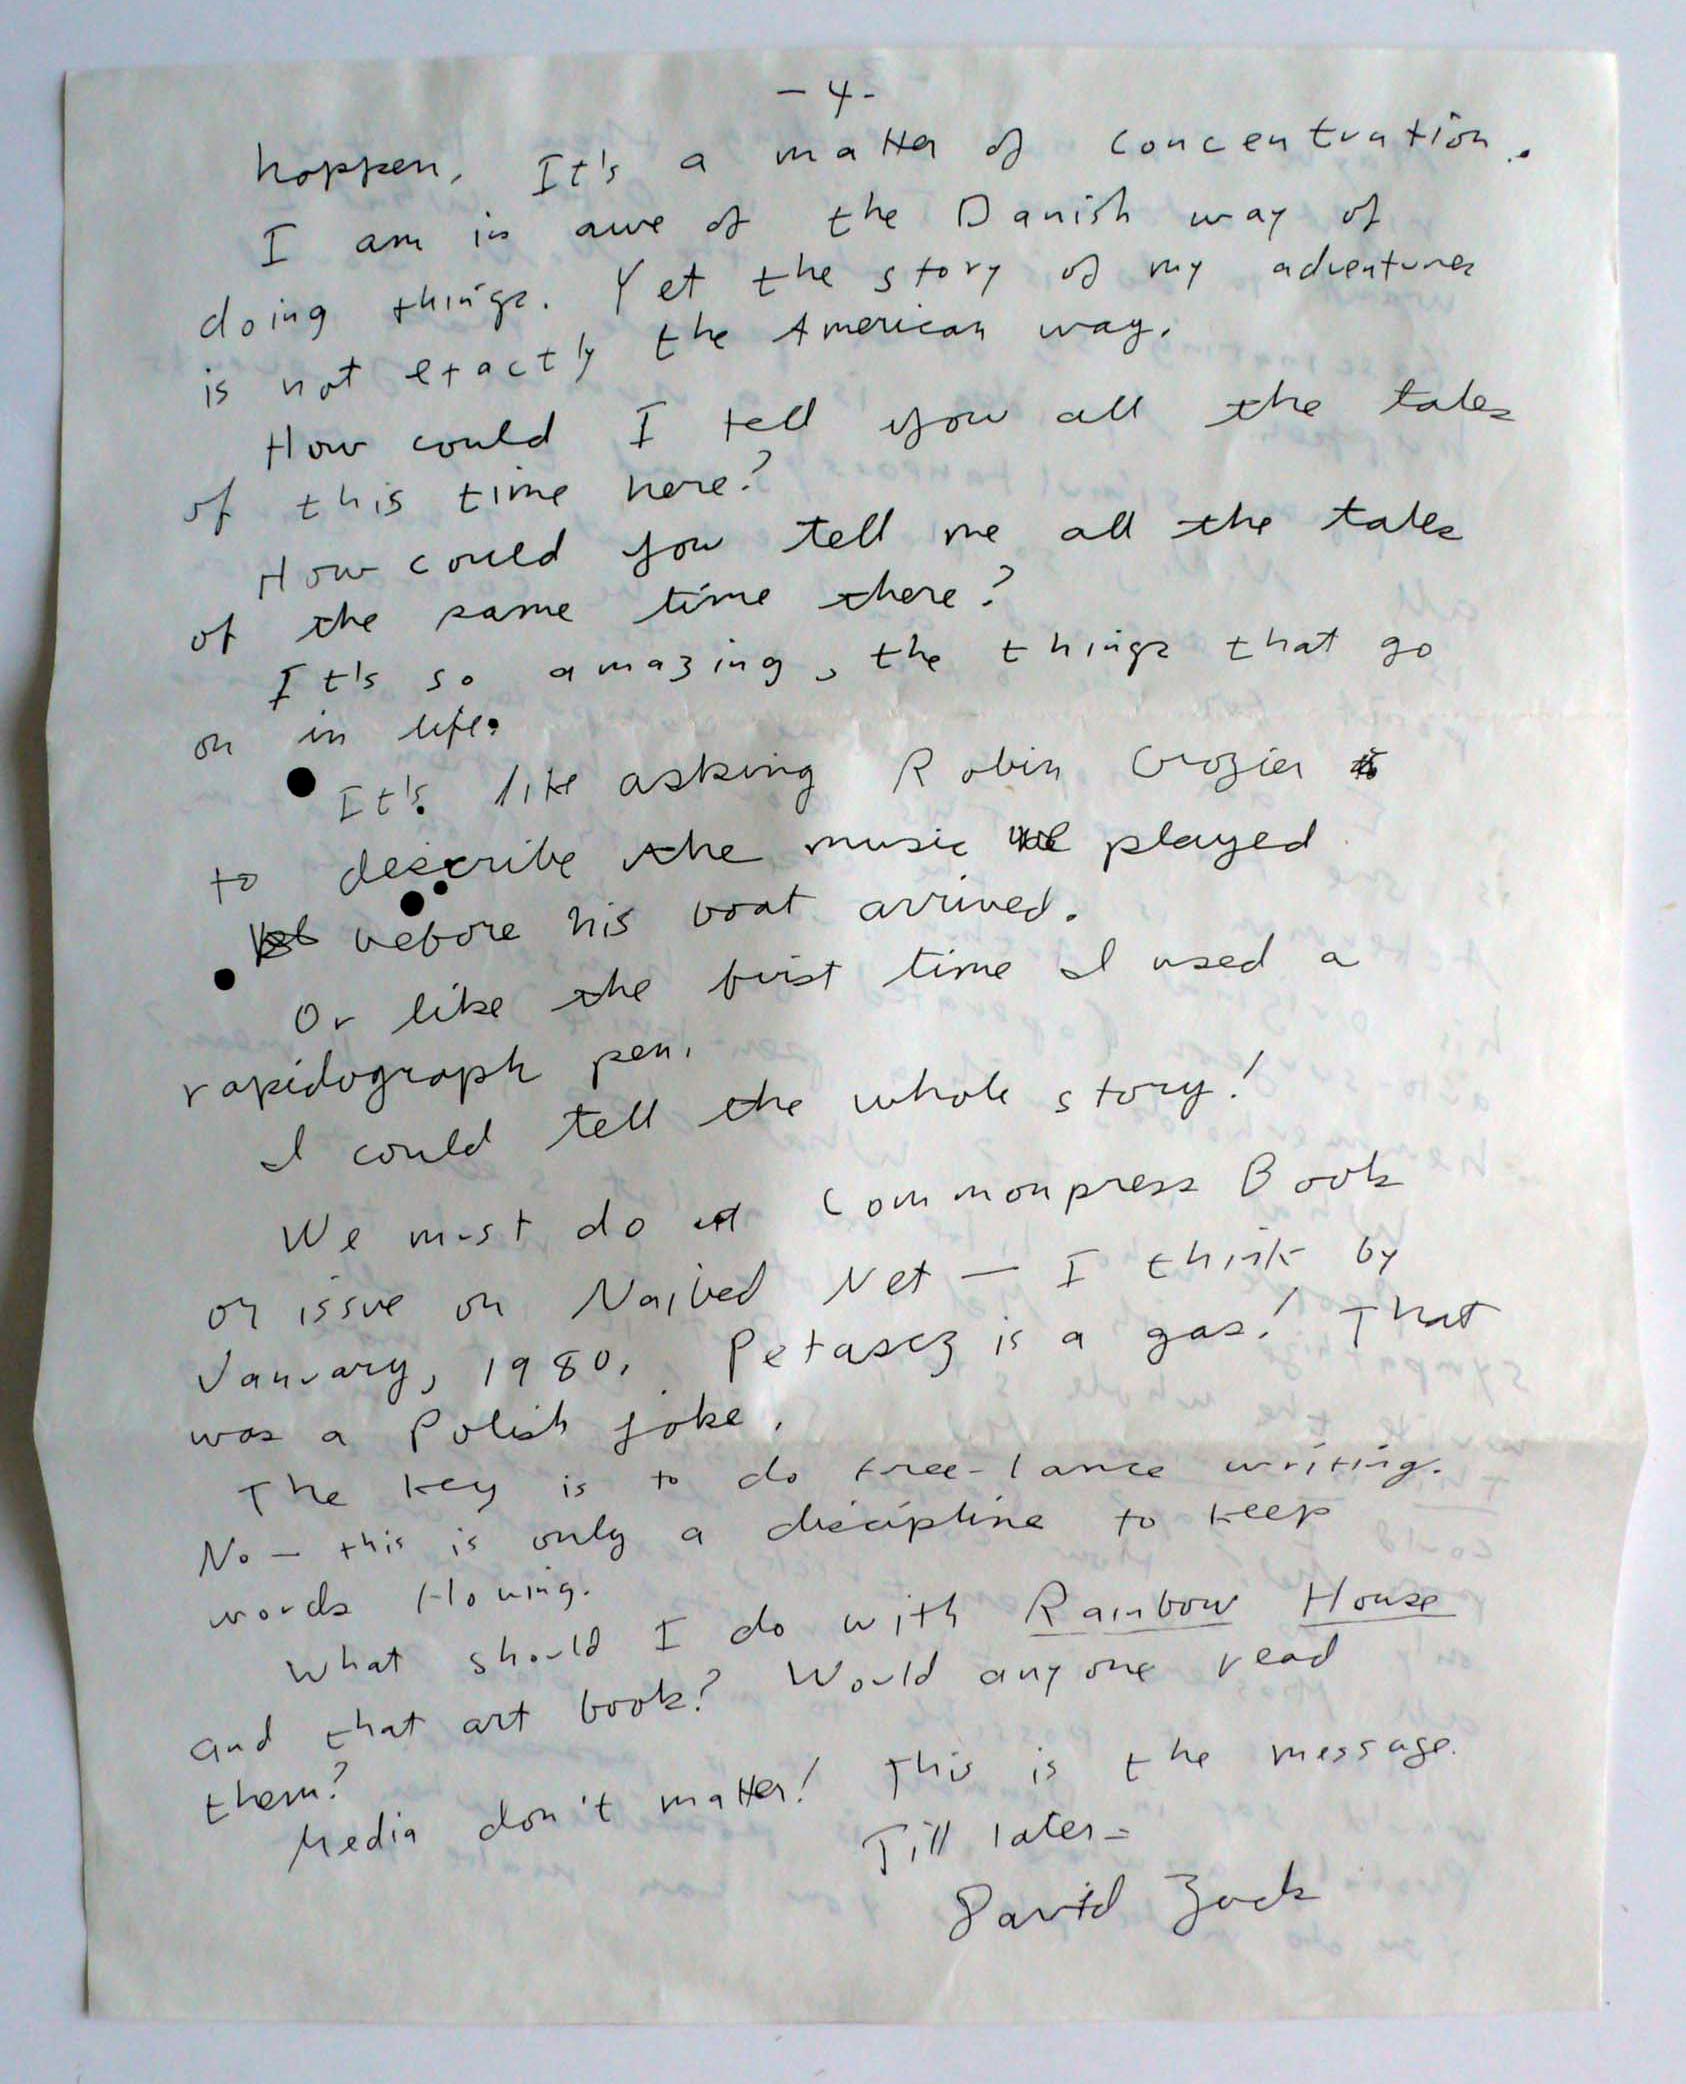 - 4 -
happen. It's a matter of concentration.
I am in awe of the Danish way of
doing things. Yet the story of my adventures
is not exactly the American way.
How could I tell you all the tales
of this time here?
How could you tell me all the tales
of the same time there?
It's so amazing, the things that go
on in life.
It's like asking Robin Crozier
to describe the music we played
before his boat arrived.
Or like the first time I used a
rapidograph pen.
I could tell the whole story!
We must do Commonpress Book
or issue on Naived Net — I think by
January, 1980. Petascz is a gas! That
was a Polish joke.
The key is to do free-lance writing.
No — this is only a discipline to keep
words flowing.
What should I do with Rainbow House
and that art book? Would anyone read
them?
Media don't matter! This is the message.
Till later -
David Zack